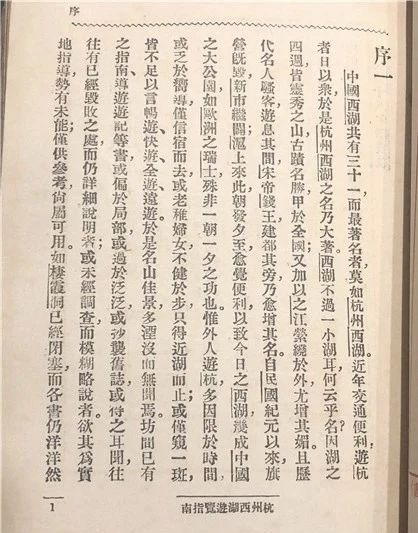 序
序一
中國西湖共有三十一而最著名者莫如杭州西湖。近年交通便利，遊杭
者日以衆。於是杭州西湖之名乃大著。西湖不過一小湖耳，何云乎名？因湖之
四週皆靈秀之山，古蹟名勝，甲於全國；又加以之江縈繞於外，尤增其媚。且歷
代名人騷客遊息其間，宋帝錢王建都其旁，乃愈增其名。自民國紀元以來，旗
營旣毀，新市繼闢，滬上來此，朝發夕至，愈覺便利，以致今日之西湖，幾成中國
之大公園，如歐洲之瑞士，殊非一朝一夕之功也。惟外人遊杭，多因限於時間，
或乏於嚮導，僅信宿而去，或老稚婦女不健於步，只得近湖而止；或僅窺一斑，
皆不足以言暢遊、快遊、全遊、遠遊。於是名山佳景，多湮沒而無聞焉。坊間已有
之指南、導遊、遊記等書，或偏於局部，或過於泛泛，或沙襲舊誌，或侍之耳聞，往
往有已經毀敗之處，而仍詳細說明者；或未經調查，而模糊略說者。欲其爲實
地指導，勢有未能，僅供參考，尙屬可用。如棲霞洞已經閉塞，而各書仍洋洋然
杭州西湖遊覽指南
1